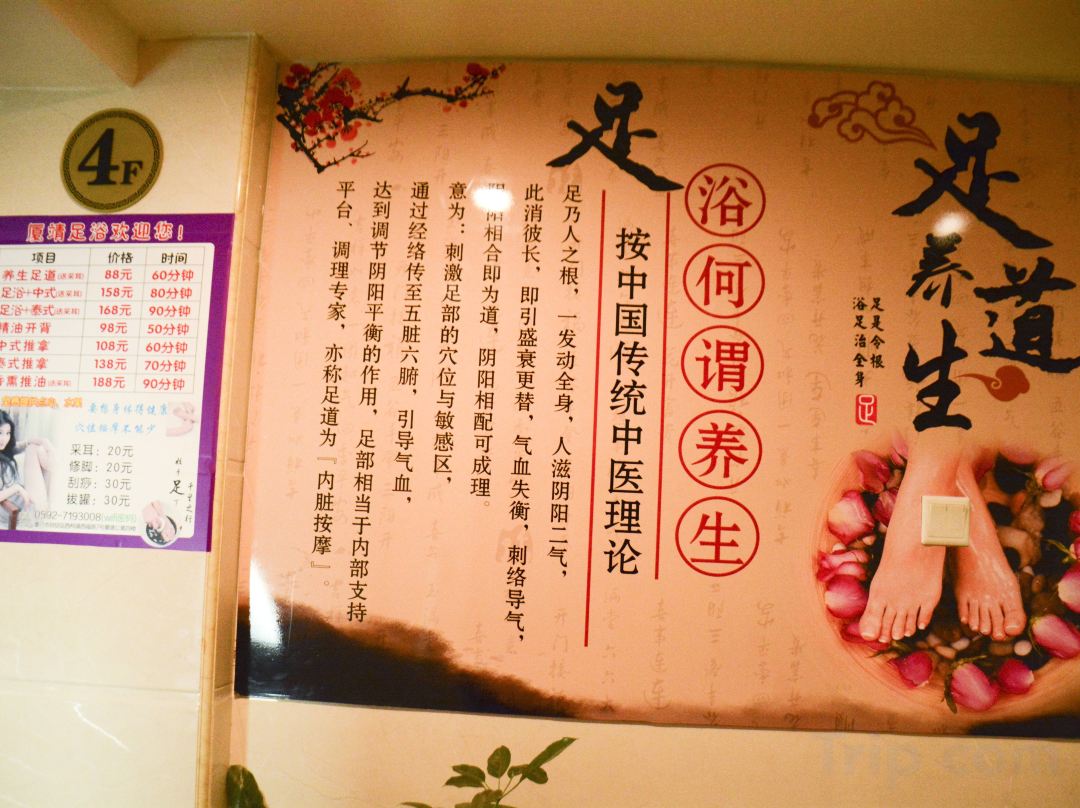 4F
厦靖足浴欢迎您!
项目 价格 时间
养生足道(送采耳) 88元 60分钟
足浴+中式(送采耳) 158元 80分钟
足浴+泰式(送采耳) 168元 90分钟
精油开背 98元 50分钟
中式推拿 108元 60分钟
泰式推拿 138元 70分钟
香熏推油(送采耳) 188元 90分钟
要想身体得健康
穴位按摩不能少
采耳:20元
修脚:20元
刮痧:30元
拔罐:30元
0592-7193008(wifi密码)
千里之行
始于足下
足道
养生
足是令根
浴足治全身
足
足
浴何谓养生
按中国传统中医理论
足乃人之根,一发动全身,人滋阴阳二气,
此消彼长,即引盛衰更替,气血失衡,刺络导气,
阴阳相合即为道,阴阳相配可成理。
意为:刺激足部的穴位与敏感区,
通过经络传至五脏六腑,引导气血,
达到调节阴阳平衡的作用,足部相当于内部支持
平台、调理专家,亦称足道为『内脏按摩』。
Trip.com